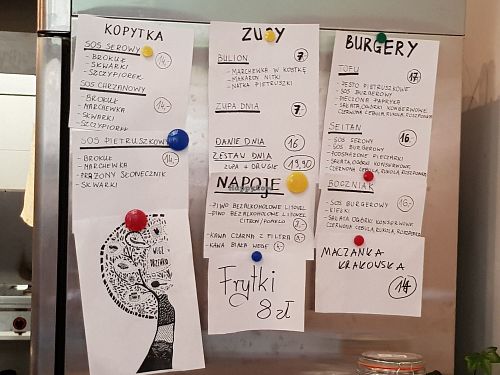 KOPYTKA
SOS SEROWY
- BROKUŁ
- SKWARKI
- SZCZYPIOREK
14,-
SOS CHRZANOWY
- BROKUŁ
- MARCHEWKA
- SKWARKI
- SZCZYPIOREK
14,-
SOS PIETRUSZKOWY
- BROKUŁ
- MARCHEWKA
- PRAŻONY SŁONECZNIK
- SKWARKI
14,-
ZUPY
BULION 7,-
- MARCHEWKA W KOSTKĘ
- MAKARON NITKI
- NATKA PIETRUSZKI
ZUPA DNIA 7,-
DANIE DNIA 16
ZESTAW DNIA 19,90
ZUPA + DRUGIE
NAPOJE
- PIWO BEZALKOHOLOWE
- PIWO BEZALKOHOLOWE
- KAWA CZARNA Z FILTRA
- KAWA BIAŁA WEGE
Frytki
8 zł
BURGERY
TOFU 17,-
- PESTO PIETRUSZKOWE
- SOS BURGEROWY
- PIECZONA PAPRYKA
- SAŁATA, OGÓRKI KONSERWOWE
CZERWONA CEBULA, RUKOLA, ROSZPONKA
SEITAN 16,-
- SOS SEROWY
- SOS BURGEROWY
- PODSMAŻONE PIECZARKI
- SAŁATA, OGÓRKI KONSERWOWE
- CZERWONA CEBULA, RUKOLA, ROSZPONKA
BOCZNIAK 16,-
- SOS BURGEROWY
- KIEŁKI
- SAŁATA, OGÓRKI KONSERWOWE
CZERWONA CEBULA, RUKOLA, ROSZPONKA
MACZANKA
KRAKOWSKA
14